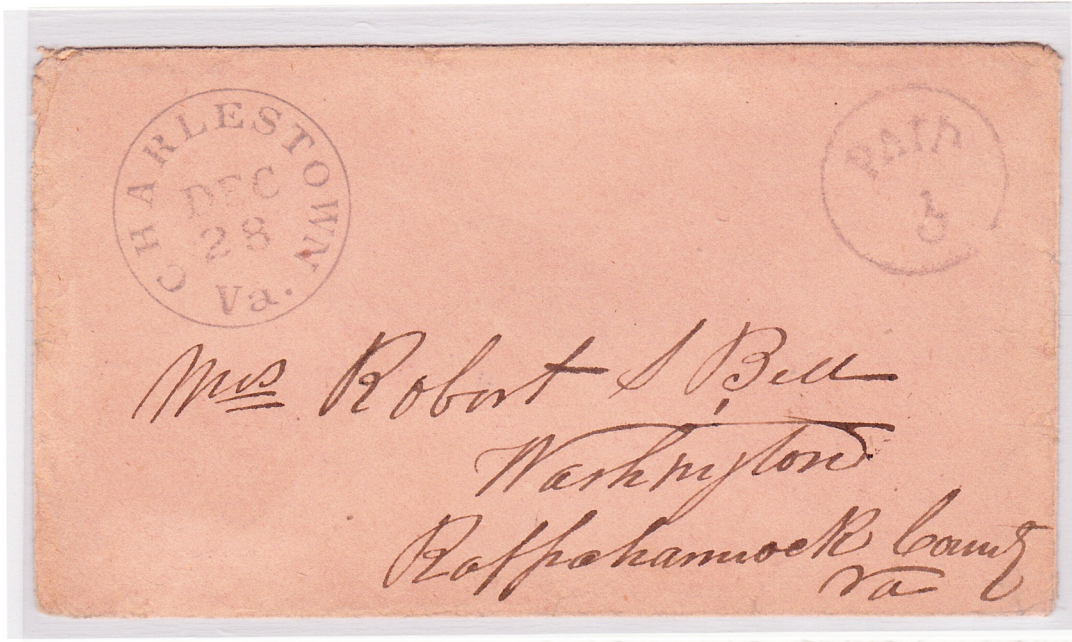 CHARLESTOWN
DEC
28
Va.
PAID
5
Mrs Robert S Bell
Washington
Rappahannock County
Va